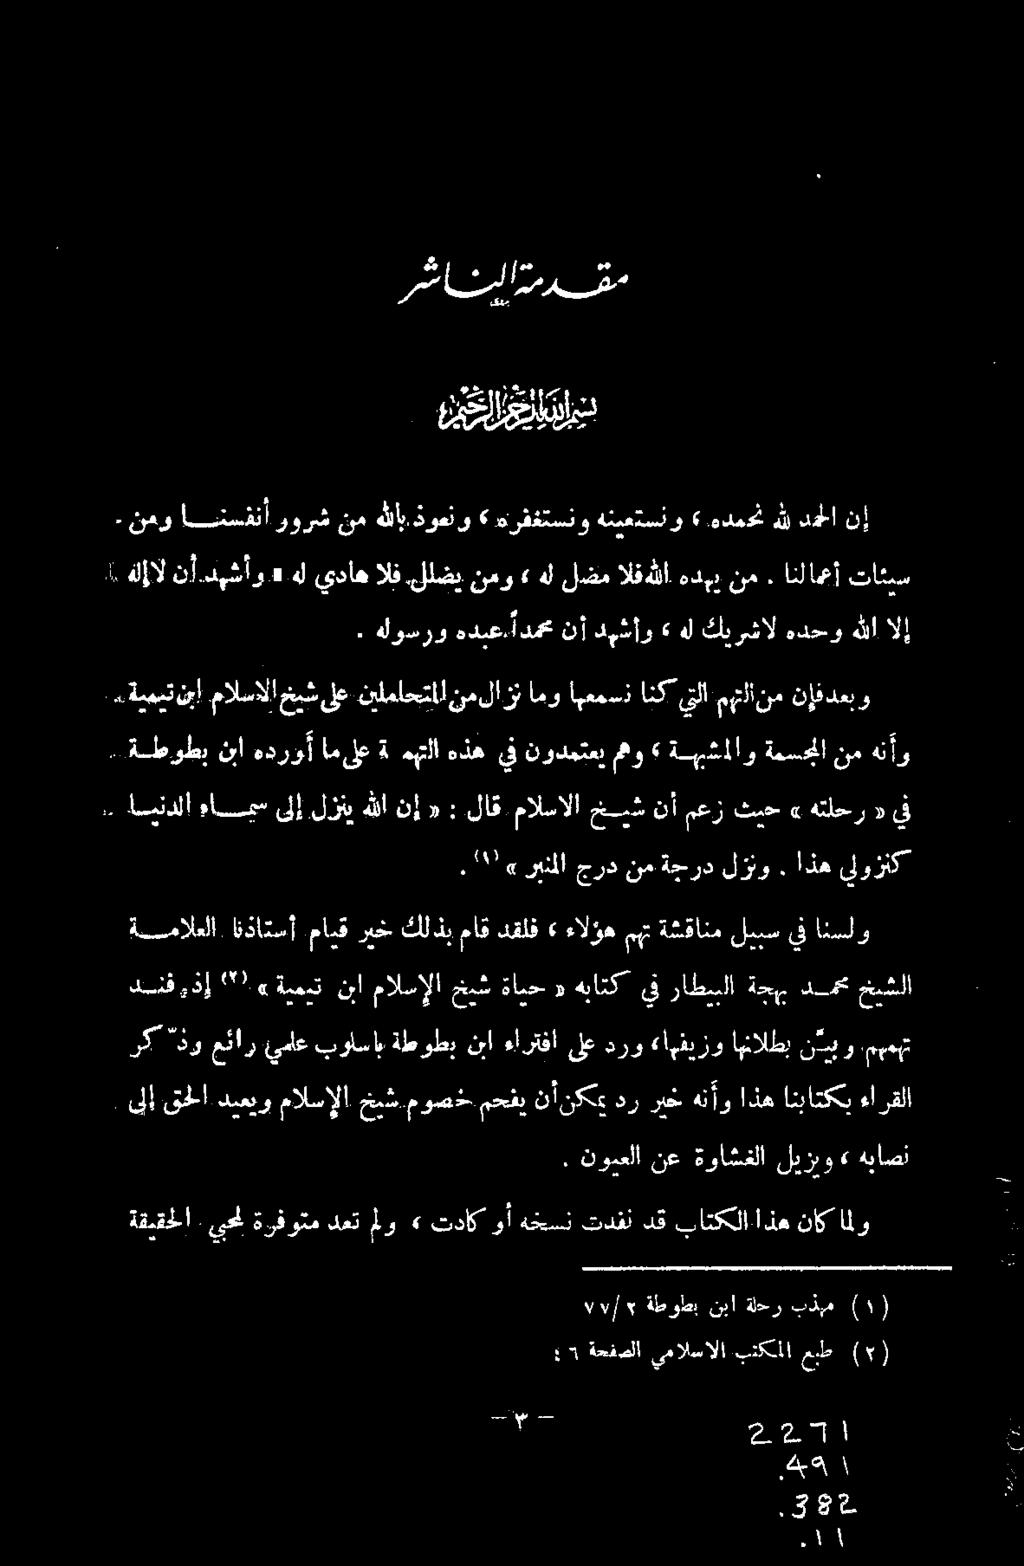 مقدمة الناشر
بسم الله الرحمن الرحيم
إن الحمد لله نحمده ، ونستعينه ونستغفره ، ونعوذ بالله من شرور أنفسنا ومن
سيئات أعمالنا . من يهده الله فلا مضل له ، ومن يضلل فلا هادي له . وأشهد أن لا إله
إلا الله وحده لا شريك له ، وأشهد أن محمداً عبده ورسوله .
وبعد فإن من التهم التي كنا نسمعها وما نزال من المتحاملين على شيخ الاسلام ابن تيمية
وأنه من المجسمة والمشبهة ، وهم يعتمدون في هذه التهمة على ما أورده ابن بطوطة
في « رحلته » حيث زعم أن شيخ الاسلام قال : « إن الله ينزل إلى سماء الدنيا
كنزولي هذا . ونزل درجة من درج المنبر » (١) .
ولسنا في سبيل مناقشة تهم هؤلاء ، فلقد قام بذلك خير قيام أستاذنا العلامة
الشيخ محمد بهجة البيطار في كتابه « حياة شيخ الإسلام ابن تيمية » (٢) إذ فند
تهمهم وبيّن بطلانها وزيفها ، ورد على افتراء ابن بطوطة باسلوب علمي رائع وذّكر
القراء بكتابنا هذا وأنه خير رد يمكن أن يفحم خصوم شيخ الإسلام ويعيد الحق إلى
نصابه ، ويزيل الغشاوة عن العيون .
ولما كان هذا الكتاب قد نفدت نسخه أو كادت ، ولم تعد متوفرة لمحبي الحقيقة
(١) مهذب رحلة ابن بطوطة ٢/٧٧
(٢) طبع المكتب الاسلامي الصفحة ٤٦
- ٣ -
2271
.491
.382
.11